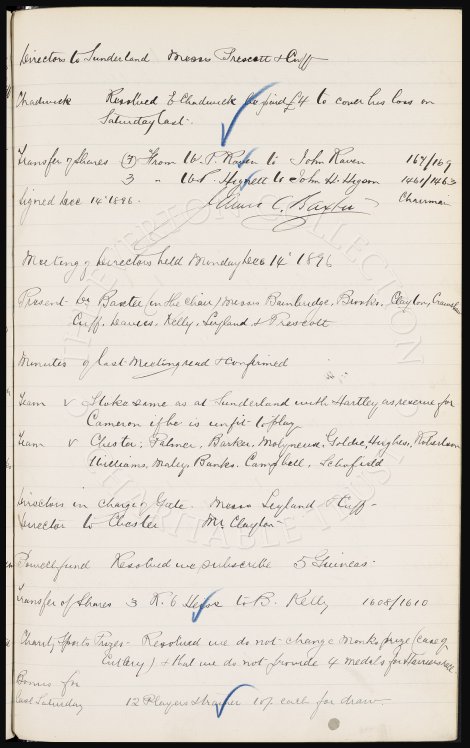 Directors to Sunderland Messrs Prescott & Cuff
Chadwick Resolved E Chadwick be paid £4 to cover his loss on
Saturday last.
Transfer of Shares (3) From W. P. Raven to John Raven 167/169
3 " W.P. Hignett to John H. 1461/1463
Signed Dec 14th 1896. James C. Baxter Chairman
Meeting of Directors held Monday Dec 14th 1896
Present Dr Baxter in the chair, Messrs Bainbridge, Brooks, Clayton, Crawshaw
Cuff, Davies, Kelly, Leyland & Prescott
Minutes of last Meeting read & confirmed
Team v Stoke same as at Sunderland with Hartley as reserve for
Cameron if he is unfit to play
Team v Chester, Palmer, Barker, Molyneux, Goldie, Hughes, Robertson
Williams, Maley, Banks, Campbell, Schofield
Directors in charge of Gate. Messrs Leyland & Cuff
Director to Chester Mr Clayton
Powell fund Resolved we subscribe 5 Guineas.
Transfer of Shares 3 to B. Kelly 1608/1610
Charity Sports Prizes - Resolved we do not change Monks prize (case of
Cutlery) & that we do not provide 4 medals for
Bonus for
last Saturday 12 Players & trainer 10/- each for draw.